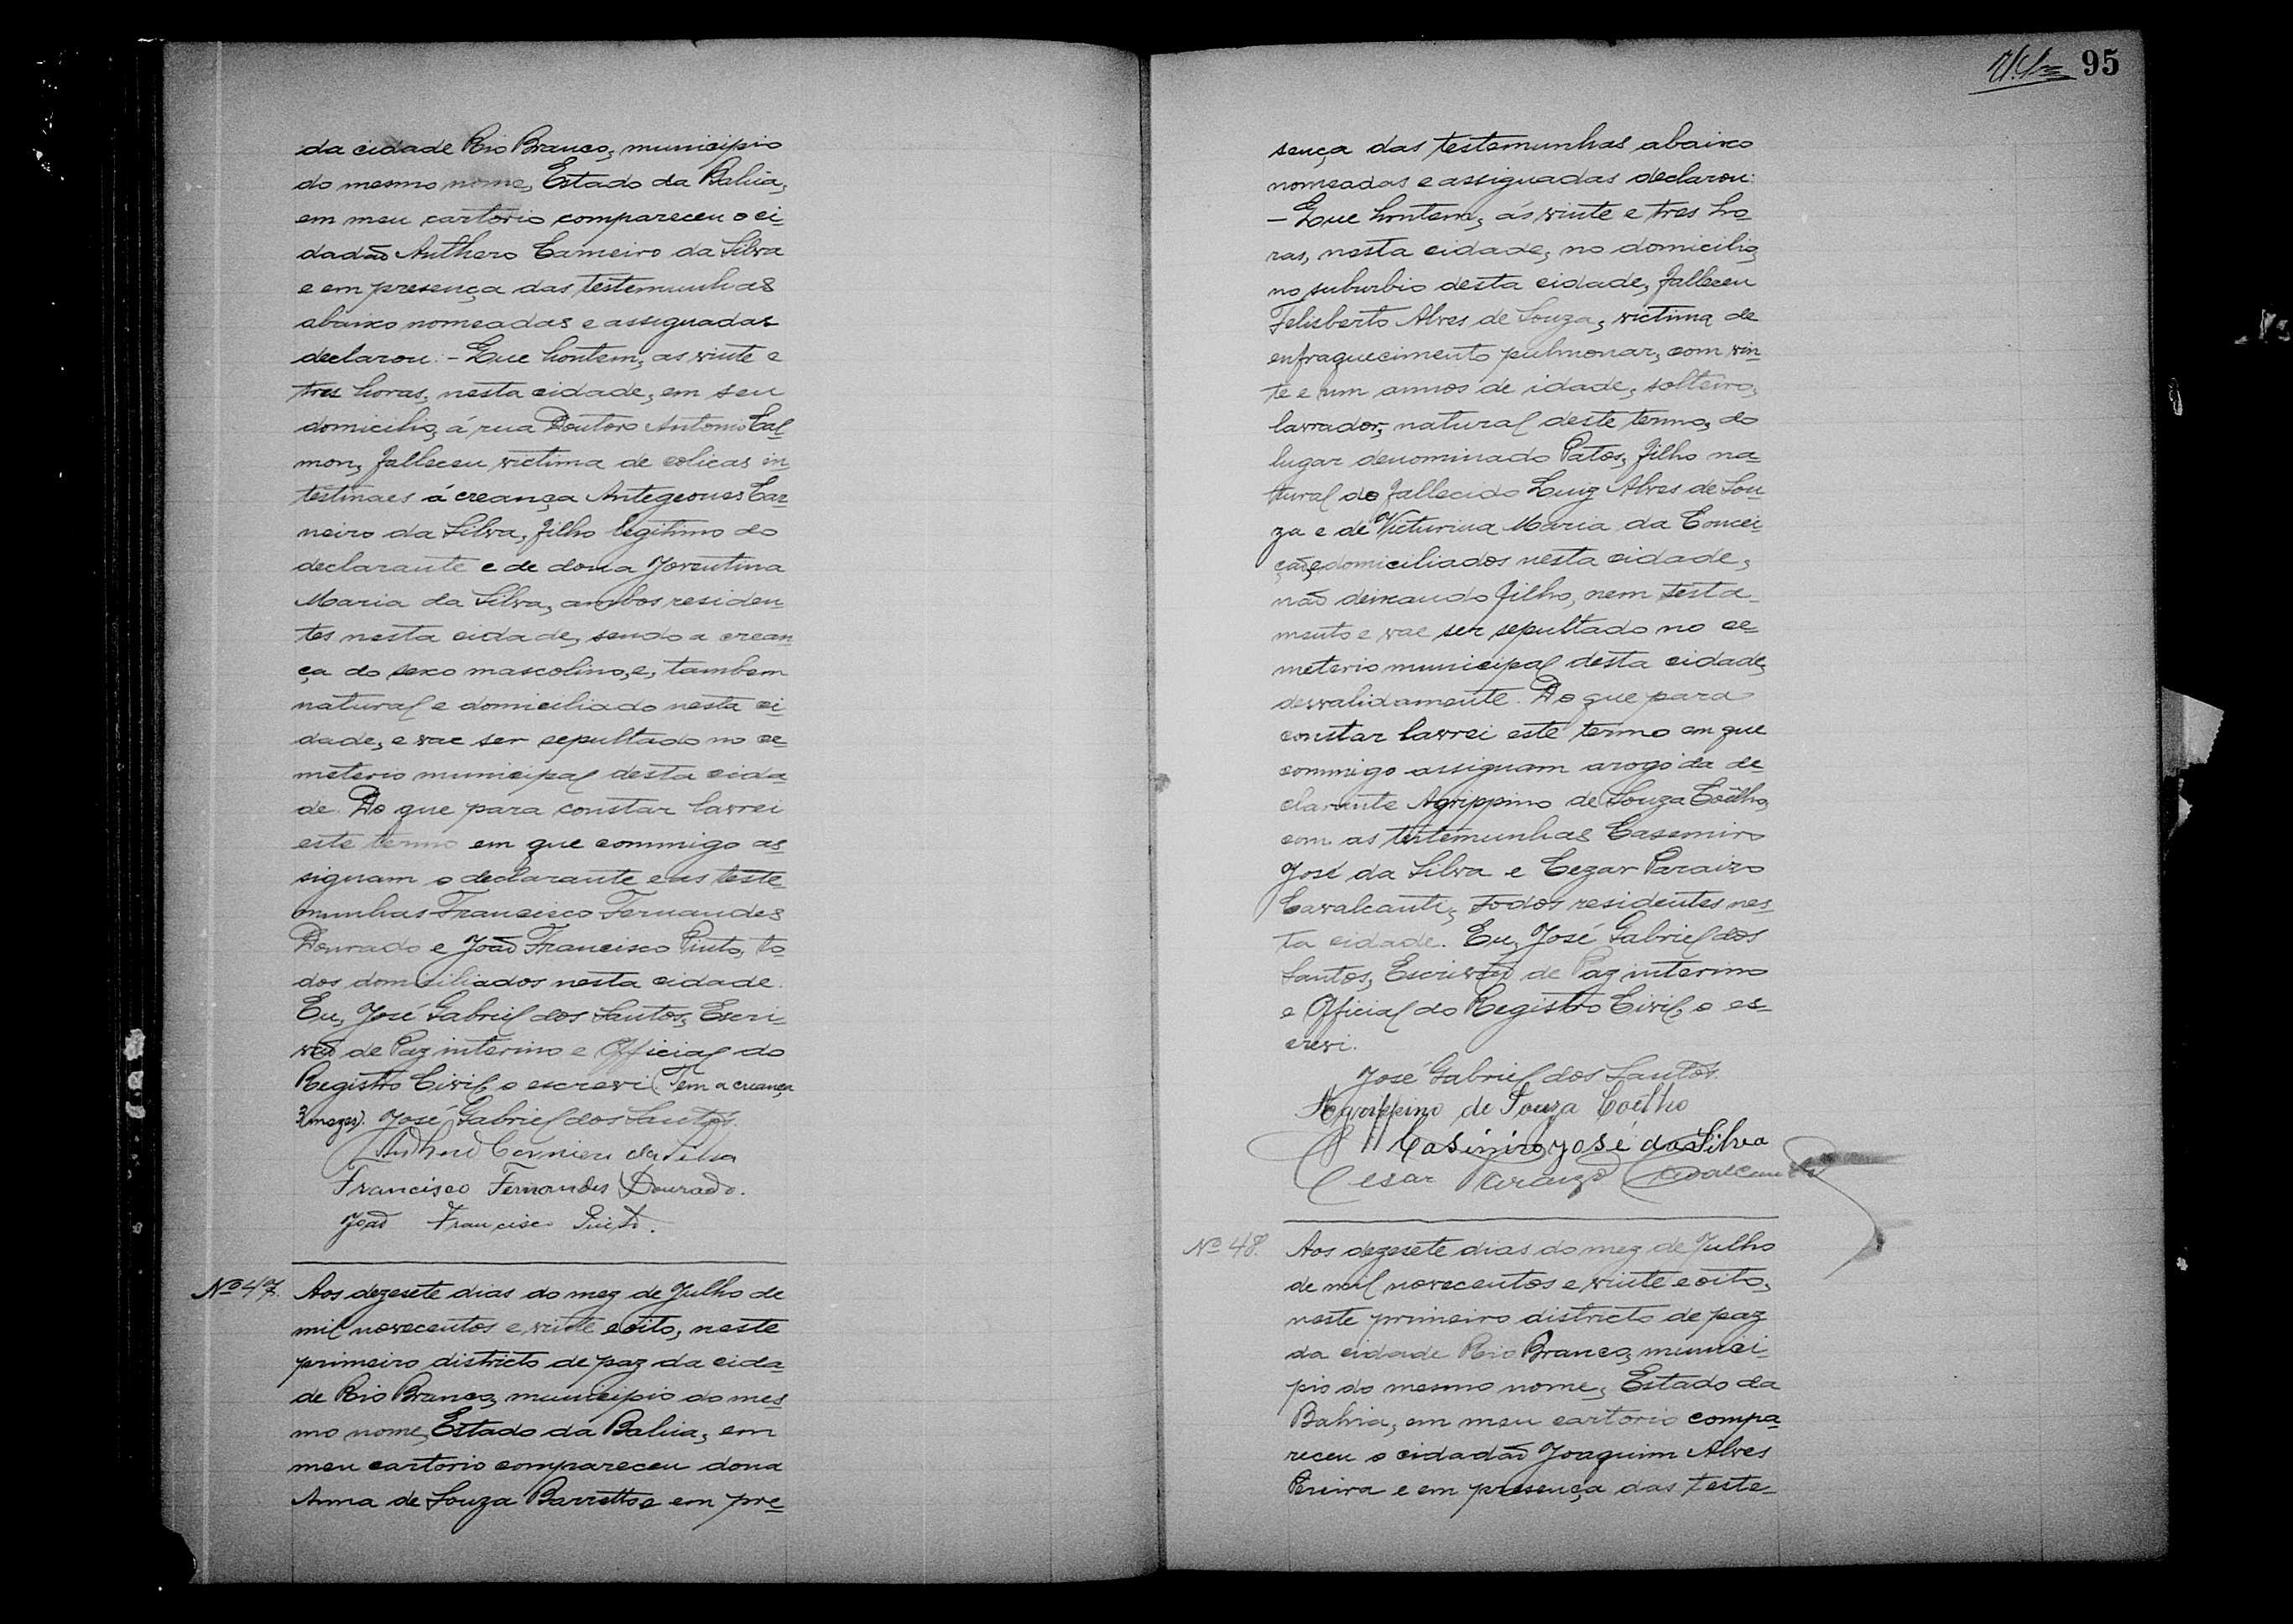 da cidade Rio Branco, municipio
do mesmo nome, Estado da Bahia,
em meu cartorio compareceu o ci-
dadão Anthero Carneiro da Silva
e em presença das testemunhas
abaixo nomeadas e assignadas
declarou: - Que hontem, as vinte e
tres horas, nesta cidade, em seu
domicilio, á rua Doutor Antonio Cal-
mon, falleceu victima de colicas in-
testinaes á creança Antegeones Car-
neiro da Silva, filho legitimo do
declarante e de dona Joventina
Maria da Silva, ambos residen-
tes nesta cidade, sendo a crean-
ça do sexo mascolino, e, tambem
natural e domiciliado nesta ci-
dade, e vae ser sepultado no ce-
miterio municipal desta cida-
de. Do que para constar lavrei
este termo em que commigo as-
signam o declarante e as teste-
munhas Francisco Fernandes
Dourado e João Francisco Pinto, to-
dos domisiliados nesta cidade.
Eu, José Gabriel dos Santos, Escri-
vão de Paz interino e Official do
Registro Civil, o escrevi (Tem a creança
3 mezes). José Gabriel dos Santos.
Anthero Carneiro da Silva
Francisco Fernandes Dourado.
João Francisco Pinto.
Nº 47. Aos dezesete dias do mez de Julho de
mil novecentos e vinte e oito, neste
primeiro districto de paz da cida-
de Rio Branco, municipio do mes-
mo nome, Estado da Bahia, em
meu cartorio compareceu dona
Anna de Souza Barretto e em pre-
95
sença das testemunhas abaixo
nomeadas e assignadas declarou:
- Que hontem, ás vinte e tres ho-
ras, nesta cidade, no domicilio,
no suburbio desta cidade, falleceu
Felisberto Alves de Souza, victima de
enfraquecimento pulmonar, com vin-
te e um annos de idade, solteiro,
lavrador, natural deste termo, do
lugar denominado Patos, filho na-
tural do fallecido Luiz Alves de Sou-
za e de Victurina Maria da Concei-
ção, domiciliados nesta cidade,
não deixando filho, nem testa-
mento e vae ser sepultado no ce-
meterio municipal desta cidade,
desvalidamente. Do que para
constar lavrei este termo em que
commigo assignam arogo da de-
clarante Agrippino de Souza Coêlho,
com as testemunhas Casemiro
José da Silva e Cezar Paraizo
Cavalcanti, todos residentes nes-
ta cidade. Eu, José Gabriel dos
Santos, Escrivão de Paz interino
e Official do Registro Civil, o es-
crevi.
José Gabriel dos Santos.
Agrippino de Souza Coêlho
Casimiro José da Silva
Cesar Paraizo Cavalcanti
Nº 48. Aos dezesete dias do mez de Julho
de mil novecentos e vinte e oito,
neste primeiro districto de paz
da cidade Rio Branco, munici-
pio do mesmo nome, Estado da
Bahia, em meu cartorio compa-
receu o cidadão Joaquim Alves
Pereira e em presença das teste-